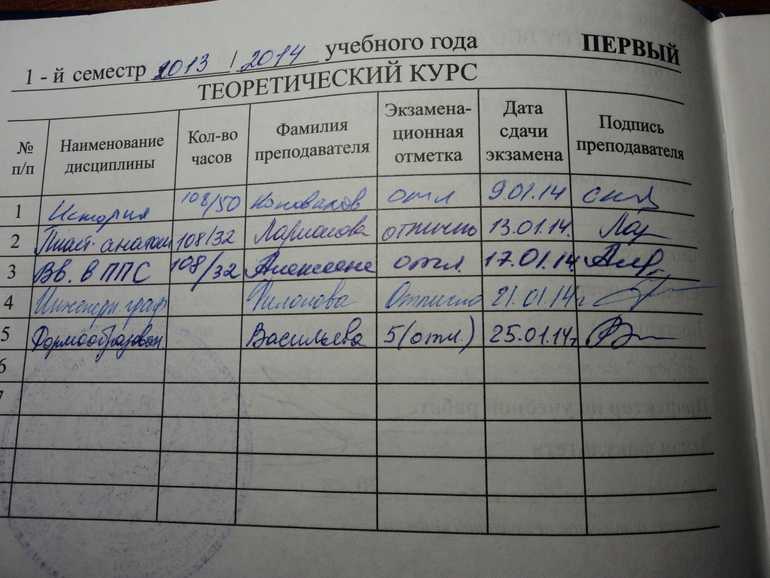 1 - й семестр 2013 / 2014 учебного года ПЕРВЫЙ
ТЕОРЕТИЧЕСКИЙ КУРС
№ п/п Наименование дисциплины Кол-во часов Фамилия преподавателя Экзамена-ционная отметка Дата сдачи экзамена Подпись преподавателя
1 История 108/50 Коновалов отл 9.01.14
2 Пласт. анатом 108/32 Ларионова отлично 13.01.14.
3 Вв. в ППС 108/32 отл. 17.01.14.
4 Инженерн граф Филонова Отлично 21.01.14г
5 Формообразован Васильева 5(отл.) 25.01.14г
6
7